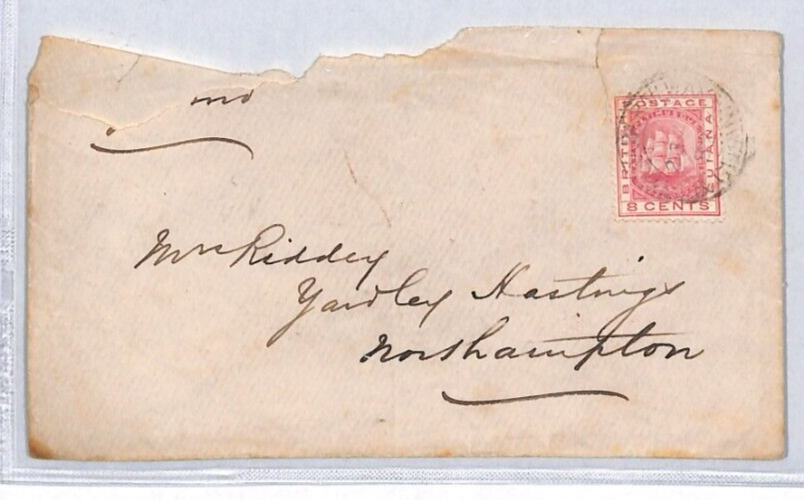 POSTAGE
BRITISH
GUIANA
8 CENTS
Mrs Riddey
Yardley Hastings
Northampton